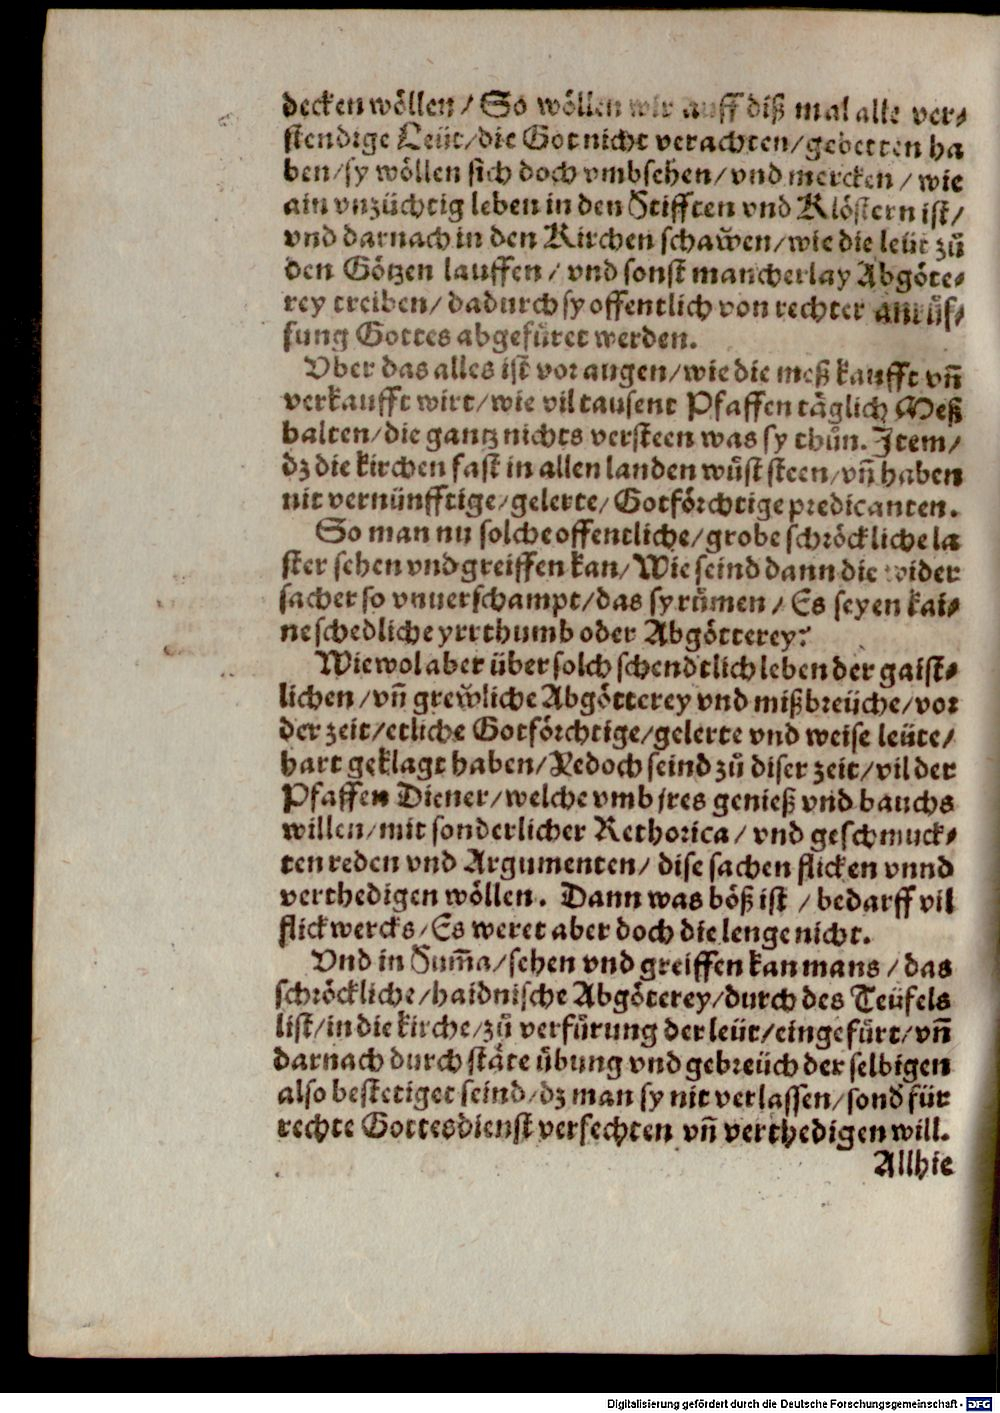 decken wöllen / So wöllen wir auff diß mal alle ver⸗
stendige Leüt/die Got nicht verachten/gebetten ha
ben/sy wöllen sich doch vmbsehen/vnd mercken / wie
ain vnzüchtig leben in den Stifften vnd Klöstern ist/
vnd darnach in den Kirchen schaẃen/wie die leüt zů
den Götzen lauffen / vnd sonst mancherlay Abgöte⸗
rey treiben/ dadurch sy offentlich von rechter anrüf⸗
fung Gottes abgefüret werden.
Vber das alles ist vor augen/wie die meß kaufft vñ
verkaufft wirt/wie vil tausent Pfaffen täglich Meß
halten/die gantz nichts versteen was sy thůn. Jtem/
dz die kirchen fast in allen landen wůst steen/vñ haben
nit vernünfftige/gelerte/Gotförchtige predicanten.
So man nu solche offentliche/grobe schröckliche la
ster sehen vnd greiffen kan/Wie seind dann die wider
sacher so vnuerschampt/das sy rümen / Es seyen kai⸗
ne schedliche yrrthumb oder Abgötterey?
Wiewol aber über solch schendtlich leben der gaist⸗
lichen/vñ greẃliche Abgötterey vnd mißbreüche/vor
der zeit/etliche Gotförchtige/gelerte vnd weise leüte/
hart geklagt haben/Yedoch seind zů diser zeit/vil der
Pfaffen Diener/welche vmb jres genieß vnd bauchs
willen/mit sonderlicher Rethorica/ vnd geschmuck⸗
ten reden vnd Argumenten/ dise sachen flicken vnnd
verthedigen wöllen. Dann was böß ist / bedarff vil
flickwercks/Es weret aber doch die lenge nicht.
Vnd in Sum̃a/sehen vnd greiffen kan mans /das
schröckliche/haidnische Abgöterey/durch des Teüfels
list/in die kirche/zů verfürung der leüt/eingefürt/vñ
darnach durch stäte übung vnd gebreüch der selbigen
also bestetiget seind/dz man sy nit verlassen/sond für
rechte Gottesdienst verfechten vñ verthedigen will.
Allhie
Digitalisierung gefördert durch die Deutsche Forschungsgemeinschaft - DFG